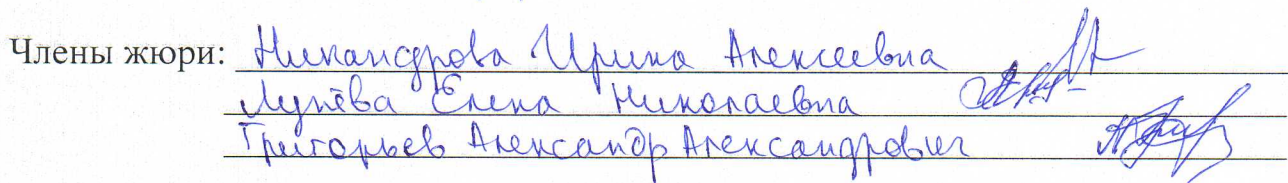 Члены жюри: Никандрова Ирина Алексеевна
Елена Николаевна
Григорьев Александр Александрович